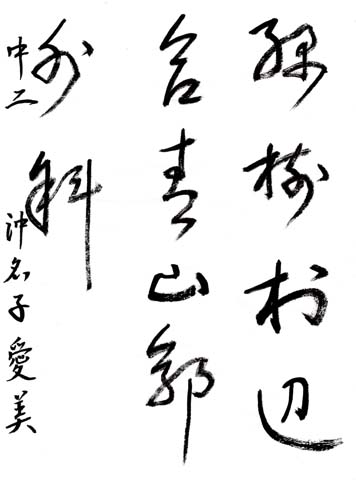 緑樹村辺
合青山郭
外斜
中二 沖名子愛美